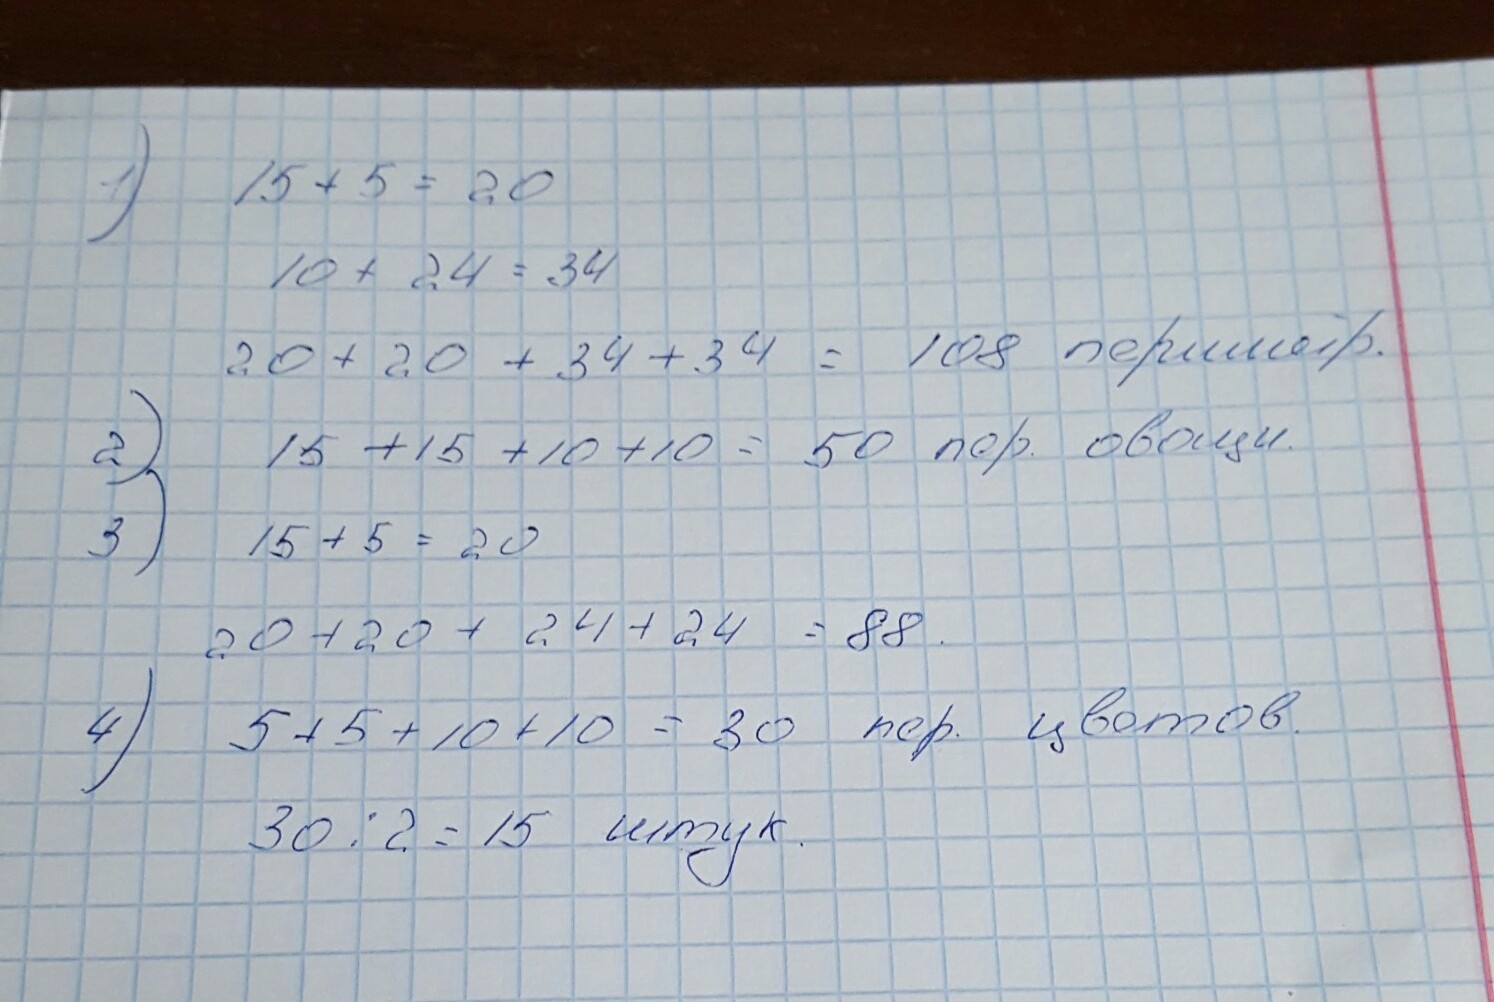 1) 15 + 5 = 20
10 + 24 = 34
20 + 20 + 34 + 34 = 108 периметр.
2) 15 + 15 + 10 + 10 = 50 пер. овощи.
3) 15 + 5 = 20
20 + 20 + 24 + 24 = 88.
4) 5 + 5 + 10 + 10 = 30 пер. цветов.
30 : 2 = 15 штук.